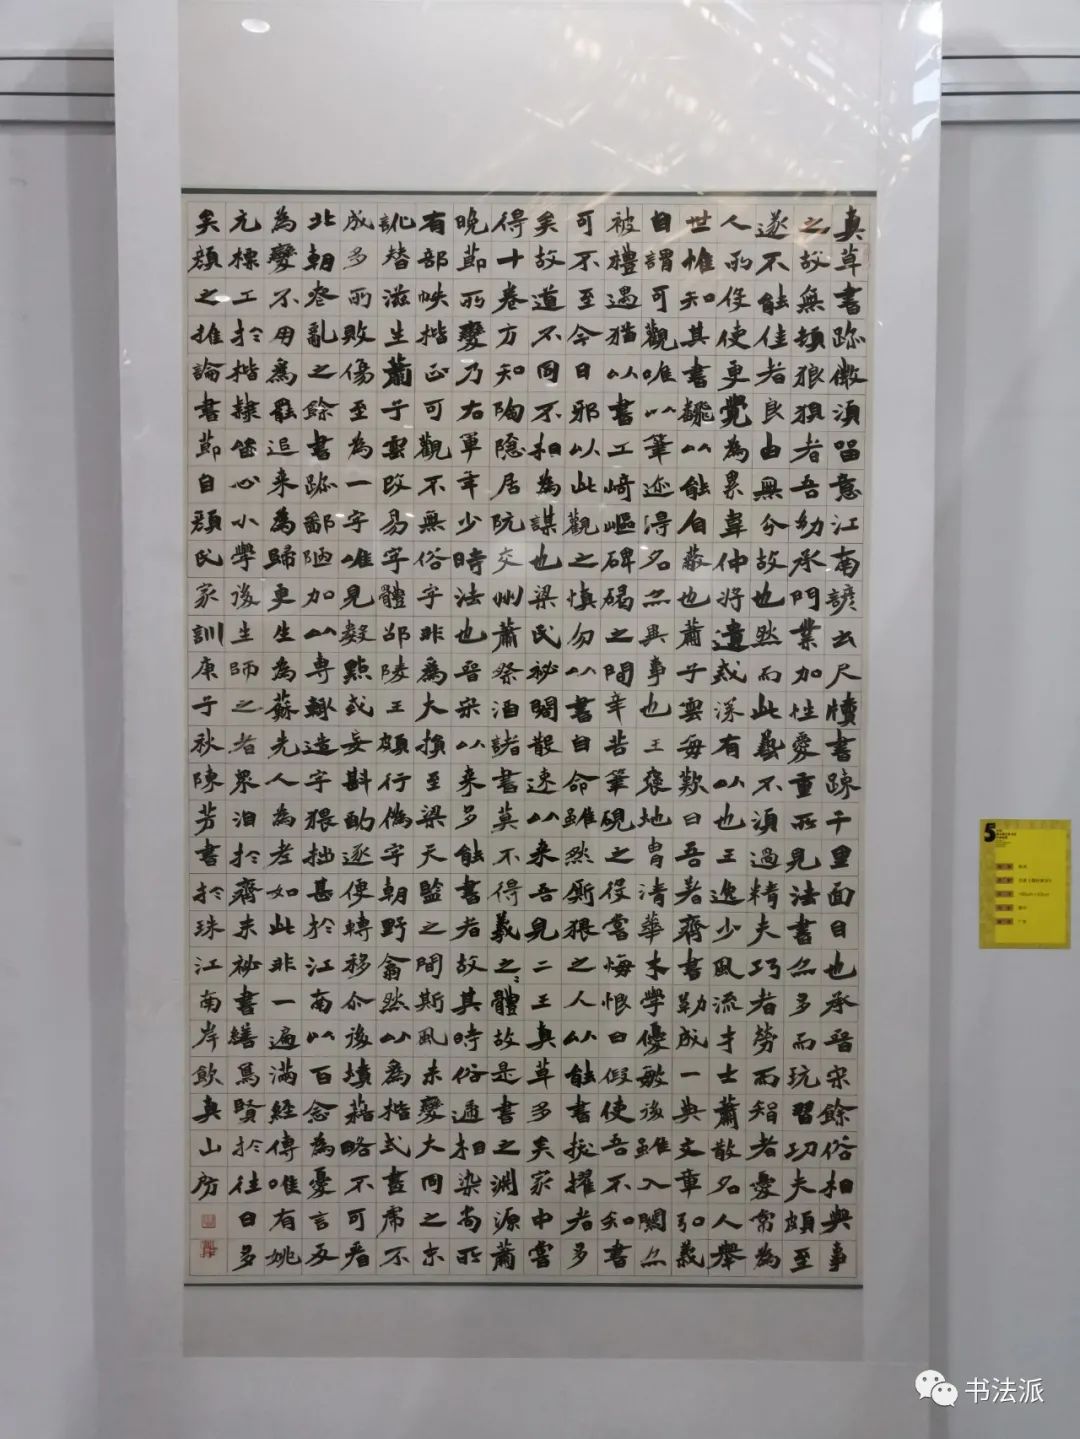 真草書跡微須留意江南諺云尺牘書疎千里面目也承晋宋餘俗相與事
之故無頓狼狽者吾幼承門業加性愛重所見法書亦多而玩習功夫頗至
遂不能佳者良由無分故也然而此藝不須過精夫巧者勞而智者憂常為
人所役使更覺為累韋仲将遺戒深有以也王逸少風流才士蕭散名人舉
世惟知其書飜以能自蔽也蕭子雲每歎曰吾著齊書勒成一典文章弘義
自謂可觀唯以筆迹得名亦異事也王褒地胄清華才學優敏後雖入關亦
被禮遇猶以書工崎嶇碑碣之間辛苦筆硯之役嘗悔恨曰假使吾不知書
可不至今日邪以此觀之慎勿以書自命雖然廝猥之人以能書拔擢者多
矣故道不同不相為謀也梁氏秘閣散逸以来吾見二王真草多矣家中嘗
得十卷方知陶隱居阮交州蕭祭酒諸書莫不得羲之體故是書之淵源蕭
晚節所變乃右軍年少時法也晋宋以来多能書者故其時俗遞相染尚所
有部帙楷正可觀不無俗字非為大損至梁天監之間斯風未變大同之末
訛替滋生蕭子雲改易字體邵陵王頗行偽字朝野翕然以為楷式畫虎不
成多所敗傷至為一字唯見數點或妄斟酌逐便轉移尒後墳籍略不可看
北朝喪亂之餘書跡鄙陋加以専輒造字猥拙甚於江南以百念為憂言反
為變不用為罷追来為歸更生為蘇先人為老如此非一遍滿經傳唯有姚
元標工於楷隸留心小學後生師之者衆洎於齊末秘書繕寫賢於往日多
矣顔之推論書節自顔氏家訓庚子秋陳芳書於珠江南岸飲真山房
5
书法派